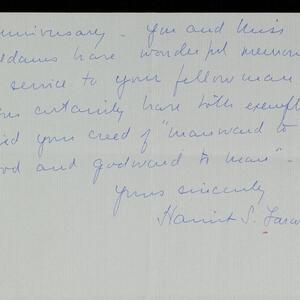 nniversary - You and Miss
ddams have wonderful memor
service to your fellowman
certainly have both exempl
ied your creed of "manward to
od and godward to man".
Yours sincerely
Harriet S.